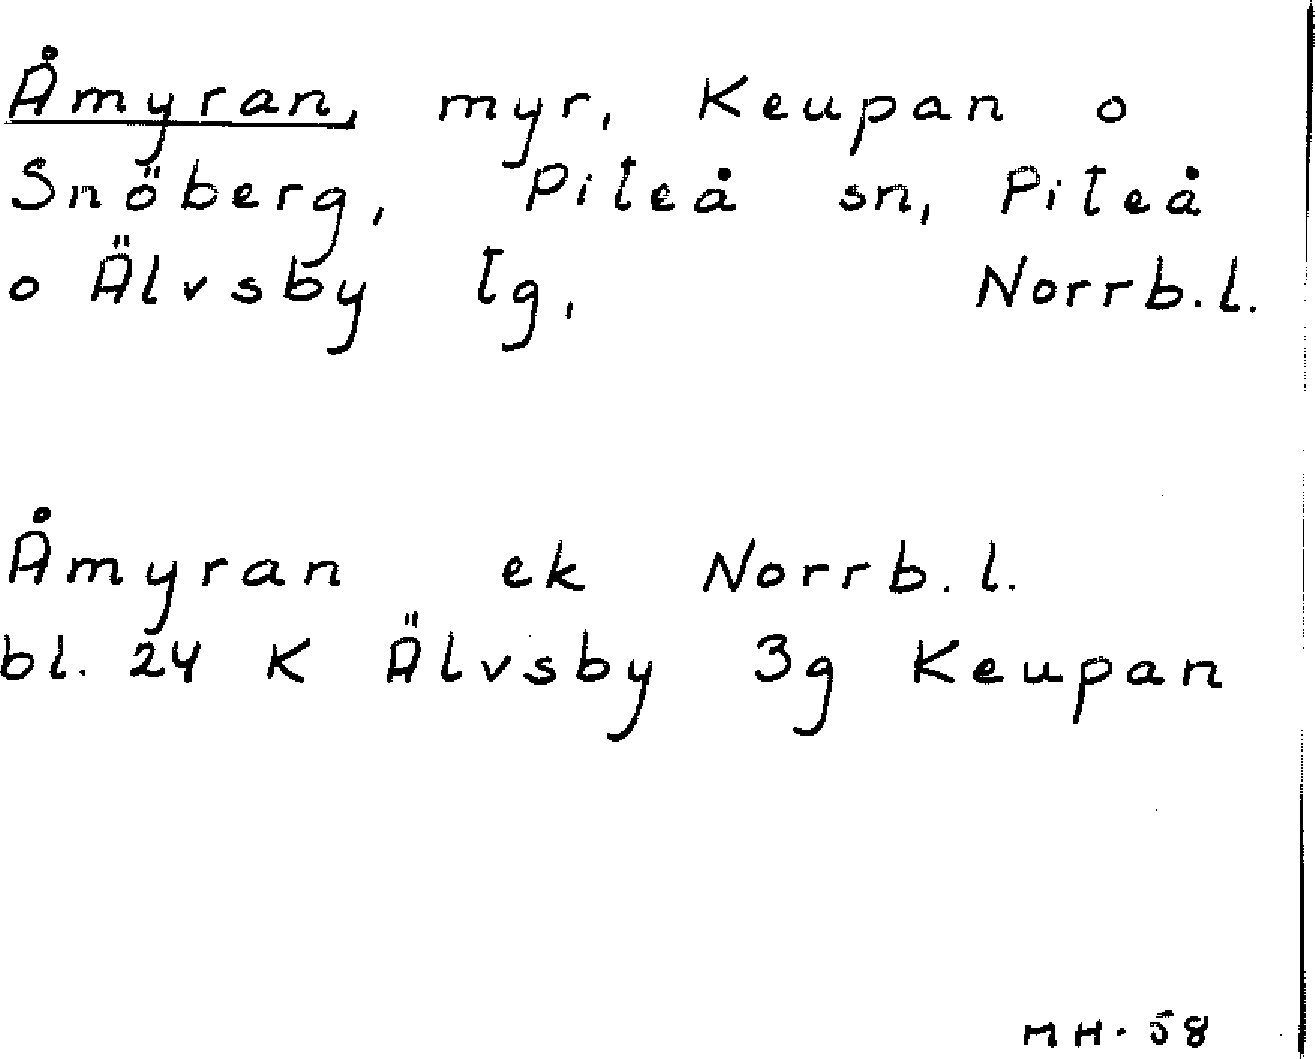 Åmyran, myr, Keupan o
Snöberg, Piteå sn, Piteå
o Älvsby tg, Norrb.l.
Åmyran ek Norrb.l.
bl. 24 K Älvsby 3g Keupan
MH. 58